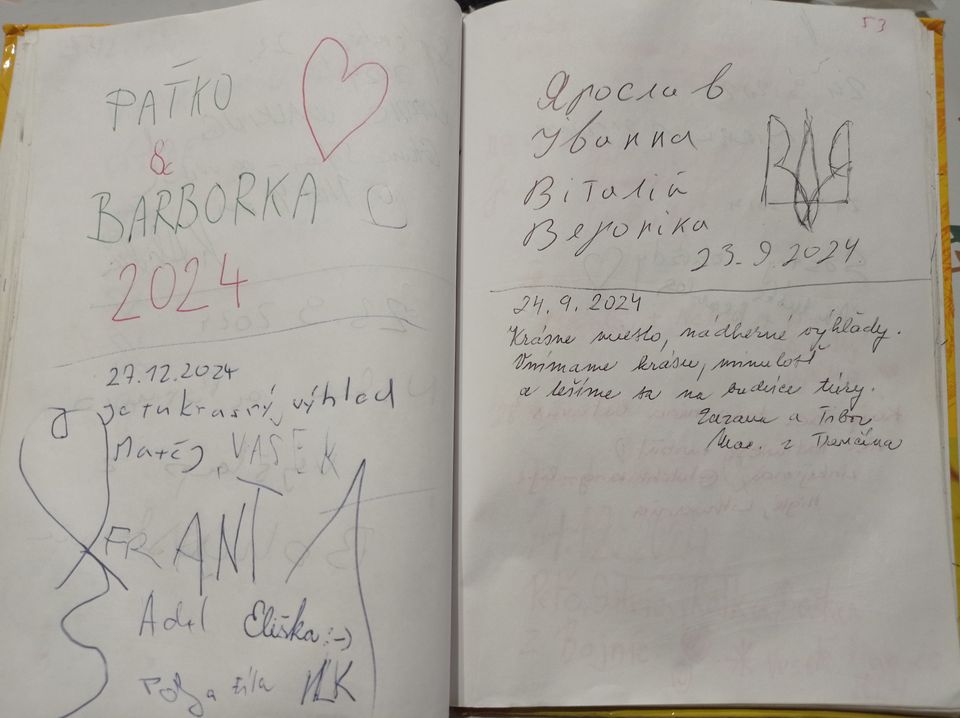 PAŤKO
&
BARBORKA
2024
27.12.2024
Je tu krasný výhled
Matěj VAŠEK
FRANTA
Adel Eliška :-)
53
Ярослав
Іванна
Віталій
Вероніка
23.9.2024.
24. 9. 2024
Krásne miesto, nádherné výhľady.
Vnímame krásu, minulosť
a tešíme sa na budúce túry.
Zuzana a Tibor
z Trenčína